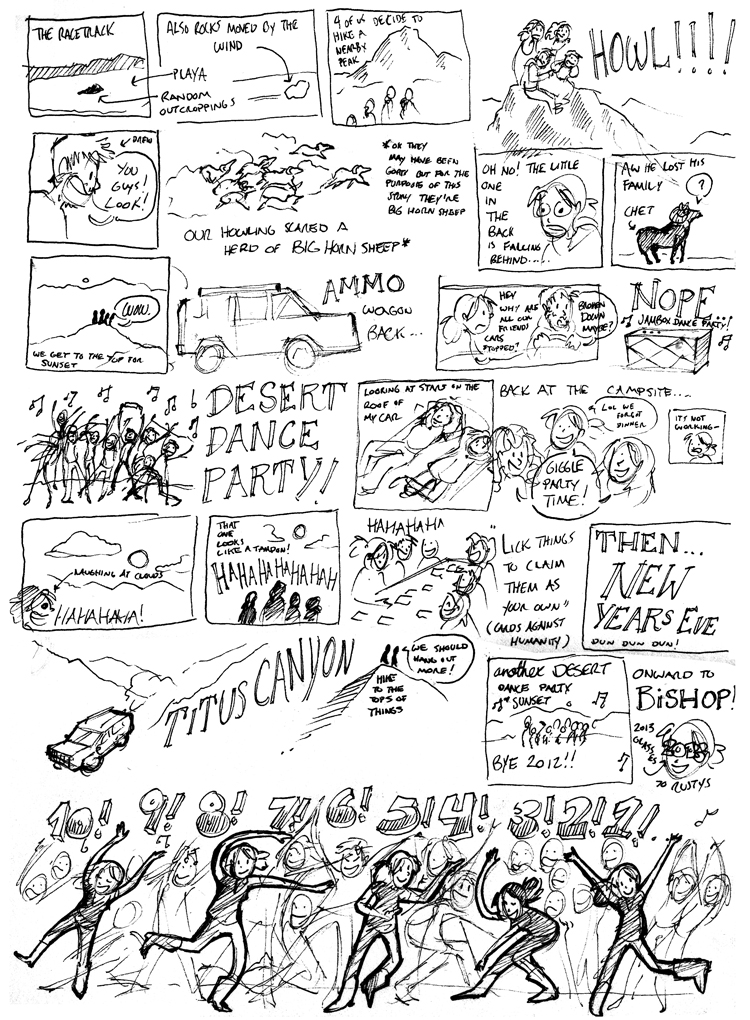 THE RACETRACK
PLAYA
RANDOM
OUTCROPPINGS
ALSO ROCKS MOVED BY THE
WIND
4 OF US DECIDE TO
HIKE A
NEARBY
PEAK
HOWL!!!!
DREW
YOU
GUYS!
LOOK!
OUR HOWLING SCARED A
HERD OF BIG HORN SHEEP*
*OK THEY
MAY HAVE BEEN
GOATS BUT FOR THE
PURPOSES OF THIS
STORY THEY'RE
BIG HORN SHEEP
OH NO! THE LITTLE
ONE
IN
THE
BACK
IS FALLING
BEHIND....
AW HE LOST HIS
FAMILY
CHET
?
WOW.
WE GET TO THE TOP FOR
SUNSET
AMMO
WAGON
BACK...
HEY
WHY ARE
ALL OUR
FRIENDS
CARS
STOPPED?
BROKEN
DOWN
MAYBE?
NOPE
JAMBOX DANCE PARTY!
DESERT
DANCE
PARTY!!
LOOKING AT STARS ON THE
ROOF OF
MY CAR
BACK AT THE CAMPSITE....
LOL WE
FORGOT
DINNER
GIGGLE
PARTY
TIME!
IT'S NOT
WORKING~
LAUGHING AT CLOUDS
HAHAHAHA!
THAT
ONE
LOOKS
LIKE A TAMPON!
HAHAHAHAHAHAH
HAHAHAHA
"LICK THINGS
TO CLAIM
THEM AS
YOUR OWN"
(CARDS AGAINST
HUMANITY)
THEN...
NEW
YEARS EVE
DUN DUN DUN!
TITUS CANYON
WE SHOULD
HANG OUT
MORE!
HIKE
TO THE
TOPS OF
THINGS
another DESERT
DANCE PARTY
SUNSET
BYE 2012!!
ONWARD TO
BISHOP!
2013
GLASSES
RUSTYS
10! 9! 8! 7! 6! 5! 4! 3! 2! 1!